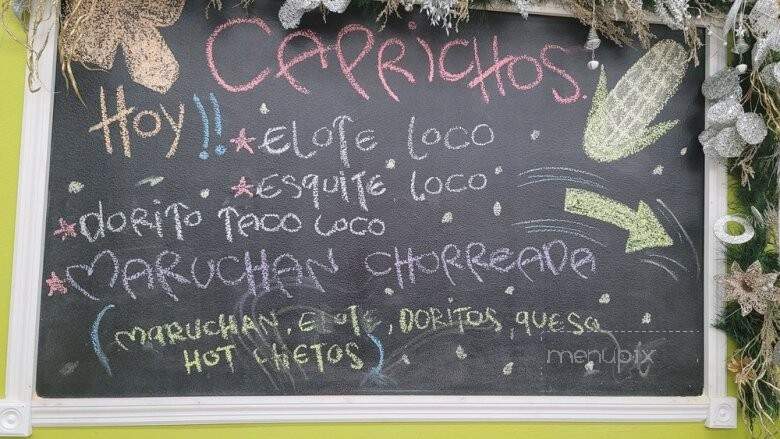 CAPRICHOS.
Hoy!!
★ELOTE LOCO
★ESQUITE LOCO
★DORITO TACO LOCO
★MARUCHAN CHORREADA
(MARUCHAN, ELOTE, DORITOS, QUESO
HOT CHETOS)
menupix